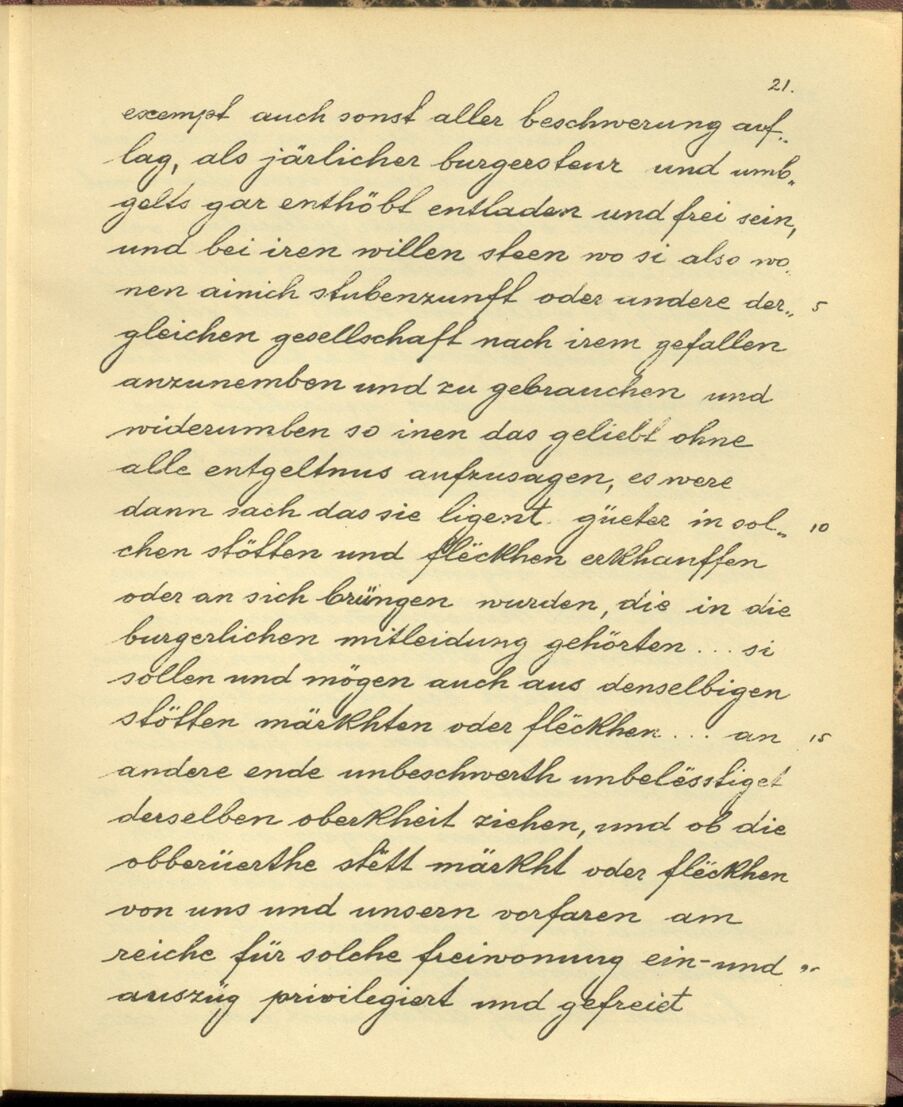 21.
exempt auch sonst aller beschwerung auf„
lag, als järlicher burgersteur und umb„
gelts gar enthöbt entladen und frei sein,
und bei iren willen steen wo si also wo„
nen ainich stubenzunft oder undere der„ 5
gleichen gesellschaft nach irem gefallen
anzunemben und zu gebrauchen und
widerumben so inen das geliebt ohne
alle entgeltnus aufzusagen, es were
dann sach das sie ligent güeter in sol„ 10
chen stötten und fleckhen erkhauffen
oder an sich brüngen wurden, die in die
burgerlichen mitleidung gehörten ... si
sollen und mögen auch aus denselbigen
stötten märkhten oder flëckhen ... an 15
andere ende unbeschwerth unbelësstiget
derselben oberkheit ziehen, und ob die
obberüerthe stëtt märkht oder flëckhen
von uns und unsern vorfaren am
reiche für solche freiwonung ein- und
auszüg privilegiert und gefreiet